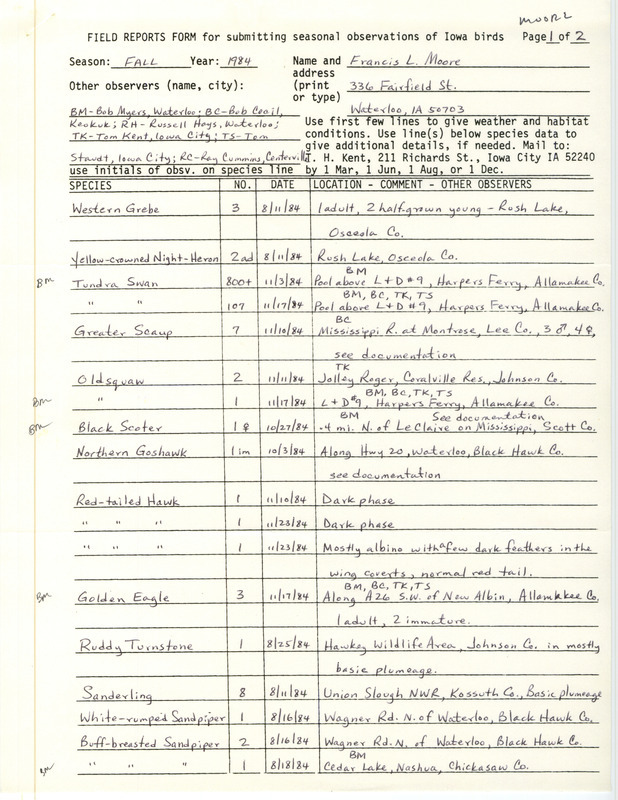 MOORE
FIELD REPORTS FORM for submitting seasonal observations of Iowa birds Page 1 of 2
Season: FALL Year: 1984 Name and address (print or type) Francis L. Moore
336 Fairfield St.
Waterloo, IA 50703
Other observers (name, city):
BM-Bob Myers, Waterloo; BC-Bob Cecil,
Keokuk; RH-Russell Hays, Waterloo;
TK-Tom Kent, Iowa City; TS-Tom
Staudt, Iowa City; RC-Ray Cummins, Centerville
use initials of obsv. on species line
Use first few lines to give weather and habitat
conditions. Use line(s) below species data to
give additional details, if needed. Mail to:
T. H. Kent, 211 Richards St., Iowa City IA 52240
by 1 Mar, 1 Jun, 1 Aug, or 1 Dec.
SPECIES NO. DATE LOCATION - COMMENT - OTHER OBSERVERS
Western Grebe 3 8/11/84 1 adult, 2 half-grown young - Rush Lake,
Osceola Co.
Yellow-crowned Night-Heron 2ad 8/11/84 Rush Lake, Osceola Co.
BM
BM Tundra Swan 800+ 11/3/84 Pool above L+D #9, Harpers Ferry, Allamakee Co.
BM, BC, TK, TS
" " 107 11/17/84 Pool above L+D #9, Harpers Ferry, Allamakee Co.
BC
Greater Scaup 7 11/10/84 Mississippi R. at Montrose, Lee Co., 3 ♂, 4 ♀,
see documentation
TK
Oldsquaw 2 11/11/84 Jolley Roger, Coralville Res., Johnson Co.
BM, BC, TK, TS
BM " 1 11/17/84 L+D #9, Harpers Ferry, Allamakee Co.
BM See documentation
BM Black Scoter 1 ♀ 10/27/84 .4 mi. N. of LeClaire on Mississippi, Scott Co.
Northern Goshawk 1 im 10/3/84 Along Hwy 20, Waterloo, Black Hawk Co.
see documentation
Red-tailed Hawk 1 11/10/84 Dark phase
" " " 1 11/23/84 Dark phase
" " " 1 11/23/84 Mostly albino with a few dark feathers in the
wing coverts, normal red tail.
BM, BC, TK, TS
BM Golden Eagle 3 11/17/84 Along A26 S.W. of New Albin, Allamakee Co.
1 adult, 2 immature.
Ruddy Turnstone 1 8/25/84 Hawkey Wildlife Area, Johnson Co. in mostly
basic plumeage.
Sanderling 8 8/11/84 Union Slough NWR, Kossuth Co., Basic plumeage
White-rumped Sandpiper 1 8/16/84 Wagner Rd. N. of Waterloo, Black Hawk Co.
Buff-breasted Sandpiper 2 8/16/84 Wagner Rd. N. of Waterloo, Black Hawk Co.
BM
BM " " " 1 8/18/84 Cedar Lake, Nashua, Chickasaw Co.